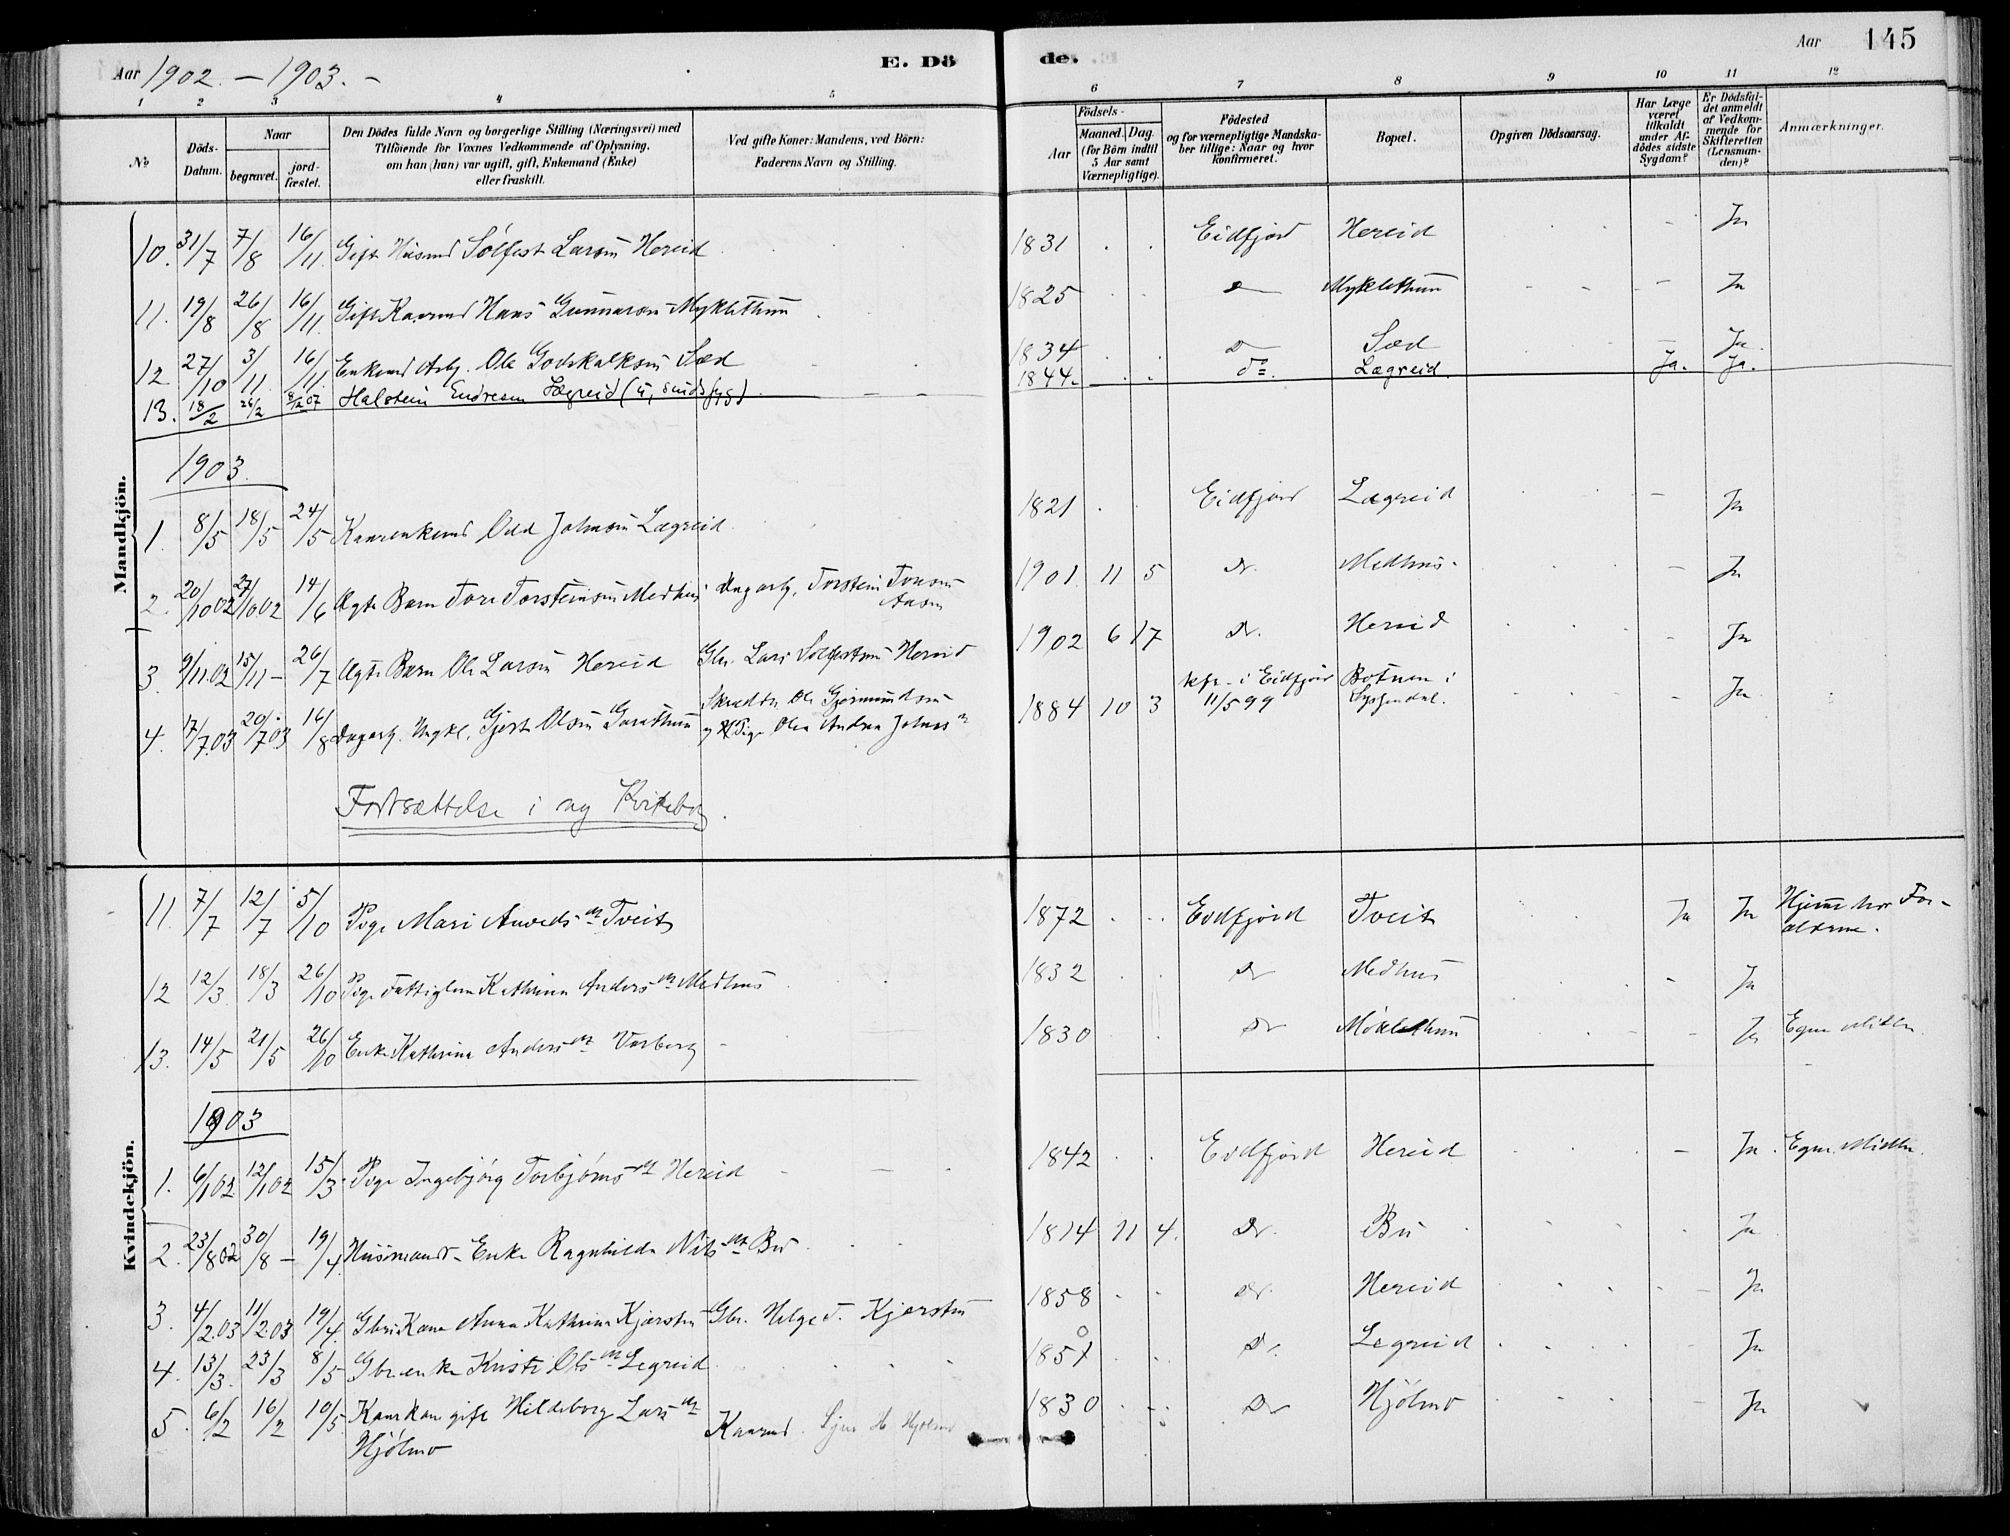 Aar 1902. - 1903. -
E. Dö
de.
Aar 145
1 2 3 4 5 6 7 8 9 10 11 12
№
Döds-Datum.
Naar
begravet. jord-fæstet.
Den Dödes fulde Navn og borgerlige Stilling (Næringsvei) med
Tilföiende for Voxnes Vedkommende af Oplysning,
om han (hun) var ugift, gift, Enkemand (Enke)
eller fraskilt.
Ved gifte Koner: Mandens, ved Börn:
Faderens Navn og Stilling.
Födsels-
Aar
Maaned. Dag.
(for Börn indtil
5 Aar samt
Værnepligtige).
Födested
og for værnepligtige Mandska-
ber tillige: Naar og hvor
konfirmeret.
Bopæl.
Opgiven Dödsaarsag.
Har Læge
været
tilkaldt
under Af-
dödes sidste
Sygdom?
Er Dödsfal-
det anmeldt
af Vedkom-
mende for
Skifteretten
(Lensman-
den)?
Anmærkninger.
Mandkjön.
10. 31/7 7/8 16/11 Gift Husmd Sölfest Larsen Hereid 1831 Eidfjord Hereid - Ja
11. 19/8 26/8 16/11 Gift Kaarmd Hans Gunnarsen Myklethun 1825 Do Myklethun - Ja
12. 27/10 3/11 16/11 Enkemd Arb. Ole Godskalksen Sæd 1834 Do Sæd - Ja.
13. 18/2 26/2 8/12 07 Halstein Endresen Lægreid (u, sindssyg) 1844. do. Lægreid. Ja. Ja.
1903.
1. 8/5 18/5 24/5 Kaarenkemd Odd Johnsen Lægreid 1821 Eidfjord Lægreid - Ja
2. 20/10 02 27/10 02 14/6 Ægte Barn Tore Torsteinsen Medhus Dagarb. Torstein 1901. 11 5 Do. Medhus - Ja
3. 9/11.02 15/11 - 26/7 Ægte Barn Ole Larsen Hereid Gbr. Lars Solfestsen Hereid 1902 6 17 Do. Hereid - Ja
4. 17/7.03 20/7 03 16/8 Dagarb. Ungkl. Gjert Olsen Garathun Skrædder Ole Gjermundsen
og Pige Olea Andrea Johns dr 1884 10 3 kfr. i Eidfjord
11/5 99 Botnen i
Sysendal. Ja
Fortsættelse i ny Kirkebog.
Kvindekjön.
11. 7/7 12/7 5/10 Pige Mari Anveds dr Tveit 1872 Eidfjord Tveit Ja Ja Hjemme hos For-
ældrene.
12 12/3 18/3 26/10 Pige Fattiglem Kathrina Anders dr Medhus 1832 Do Medhus - Ja
13. 14/5 21/5 26/10 Enke Kathrina Anders dr Varberg 1830 Do Möklethun - Ja Egne Midler.
1903
1. 6/1 02 12/1 02 15/3 Pige Ingebjörg Torbjörns dr Hereid 1842 Eidfjord Hereid - Ja. Egne Midler.
2. 23/8 02 30/8 - 19/4. Husmands-Enke Ragnhilda Nils dr Bu 1814 11 4. Do. Bu Ja
3. 4/2.03 11/2.03 19/4. Gbr. Kone Anna Kathrina Kjærstein Gbr. Helge T. Kjærstein 1858 Do. Hereid - Ja
4. 13/3. 23/3 8/5 Gbr enke Kristi Ols dr Legreid 1851 Do. Legreid Ja
5. 6/2 16/2 10/5. Kaarkone gift Hildeborg Lars dr
Hjölmo Kaarmd. Sjur H Hjölmo 1830 Do Hjölmo Ja